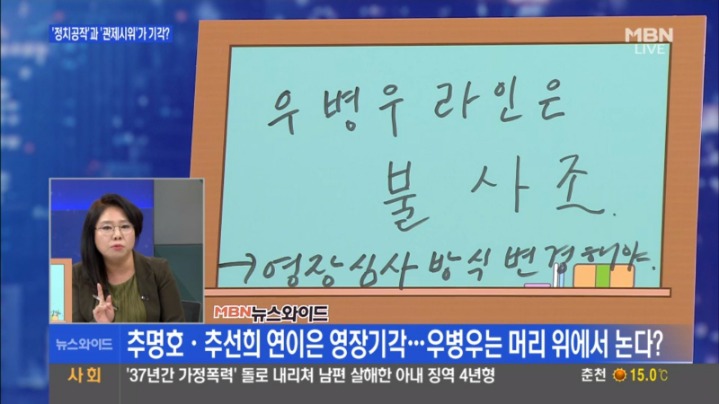 '정치공작'과 '관제시위'가 기각?
MBN
LIVE
우병우 라인은
불사조.
→영장심사 방식 변경해야.
MBN뉴스와이드
뉴스와이드
추명호·추선희 연이은 영장기각…우병우는 머리 위에서 논다?
사회
'37년간 가정폭력' 돌로 내리쳐 남편 살해한 아내 징역 4년형
춘천 15.0℃